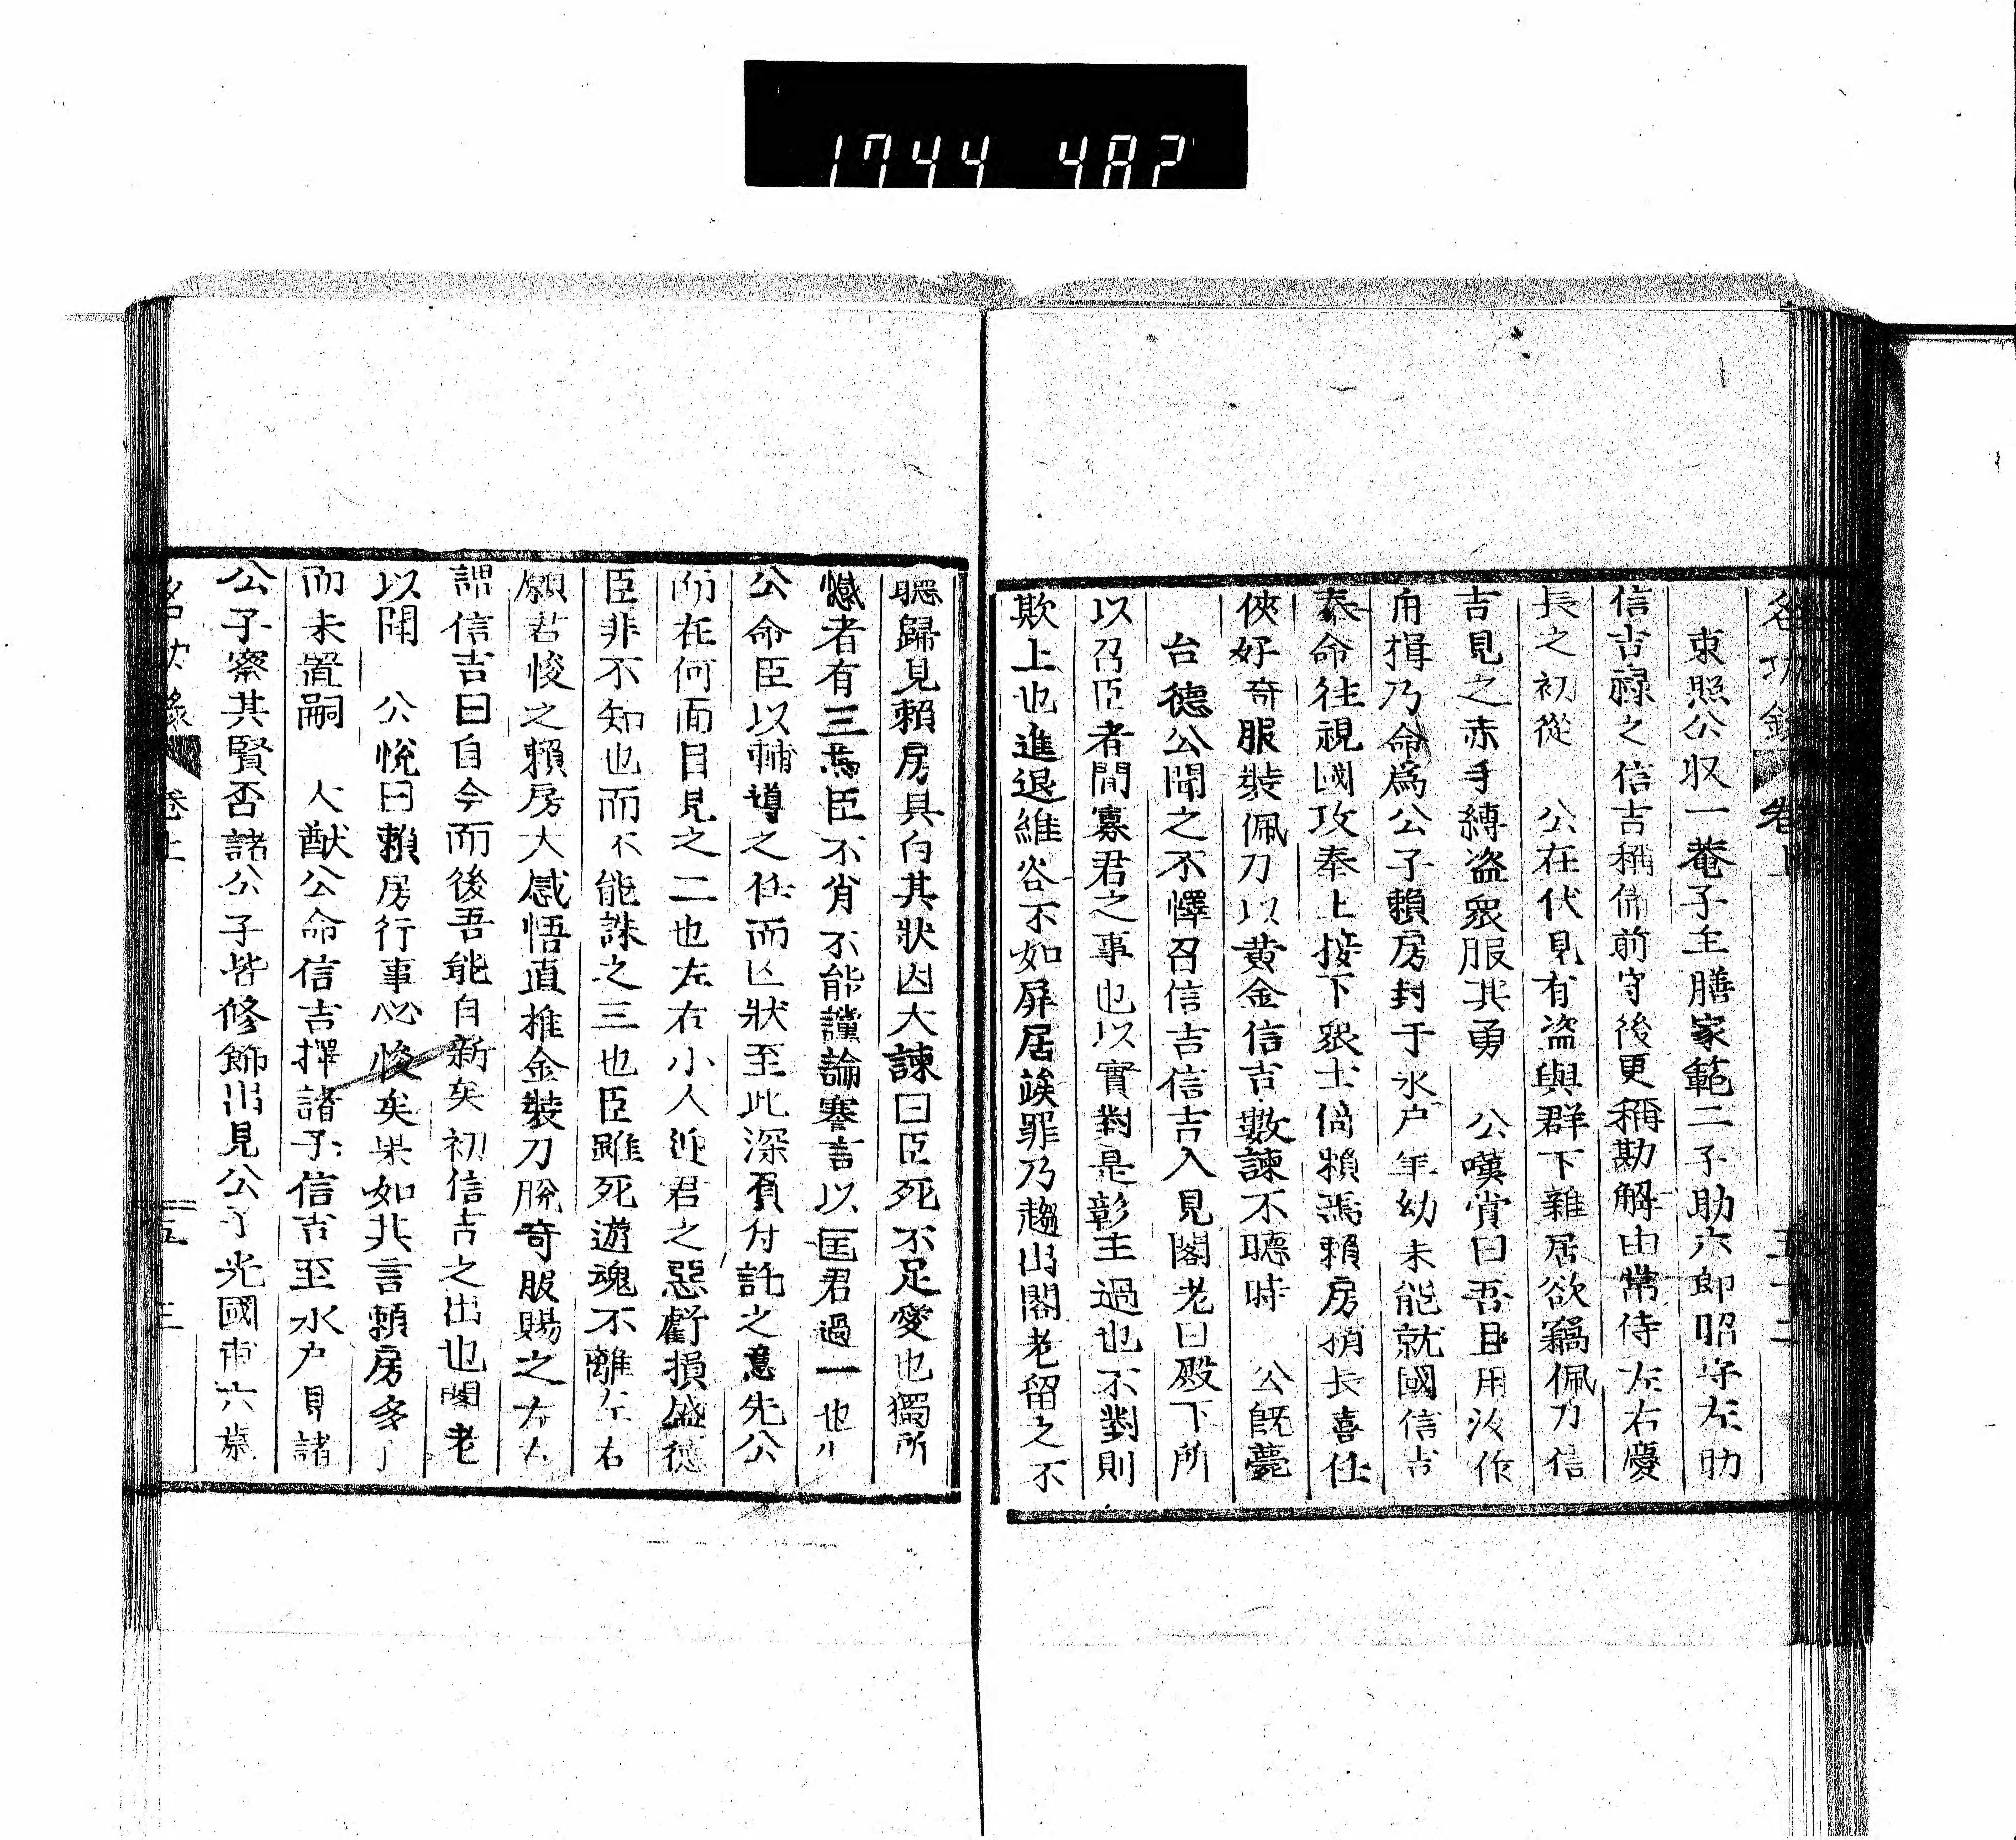 1744 487
東照公収一菴子主膳家範二子助六郎昭守左助
信吉祿之信吉稱備前守後更稱勘解由常侍左右慶
長之初從　公在伏見有盗與群下雜居欲竊佩刀信
吉見之赤手縛盗衆服其勇　公嘆賞曰吾且用汝作
舟揖乃命爲公子賴房封于水户年幼未能就國信吉
奉命往視國攻奉上接下衆士倚賴焉賴房稍長喜任
俠好奇服裝佩刀以黄金信吉數諫不聽時　公旣薨
台德公聞之不懌召信吉信吉入見閣老曰殿下所
以召臣者聞寡君之事也以實對是彰主過也不對則
欺上也進退維谷不如屏居竢罪乃趨出閣老留之不
聽歸見賴房具白其狀因大諫曰臣死不足愛也獨所
憾者有三焉臣不肖不能讜論謇言以匡君過一也
公命臣以輔導之任而亡狀至此深負付託之意先公
所在何面目見之二也左右小人迎君之惡虧損盛德
臣非不知也而不能誅之三也臣雖死遊魂不離左右
願君悛之賴房大感悟直推金裝刀脫奇服賜之左右
謂信吉曰自今而後吾能自新矣初信吉之出也閣老
以聞　公悅曰賴房行事必悛矣果如其言賴房多子
而未置嗣　大猷公命信吉擇諸子信吉至水户見諸
公子察其賢否諸公子皆修飾出見公子光國甫六歲
名功錄　卷上　五十三